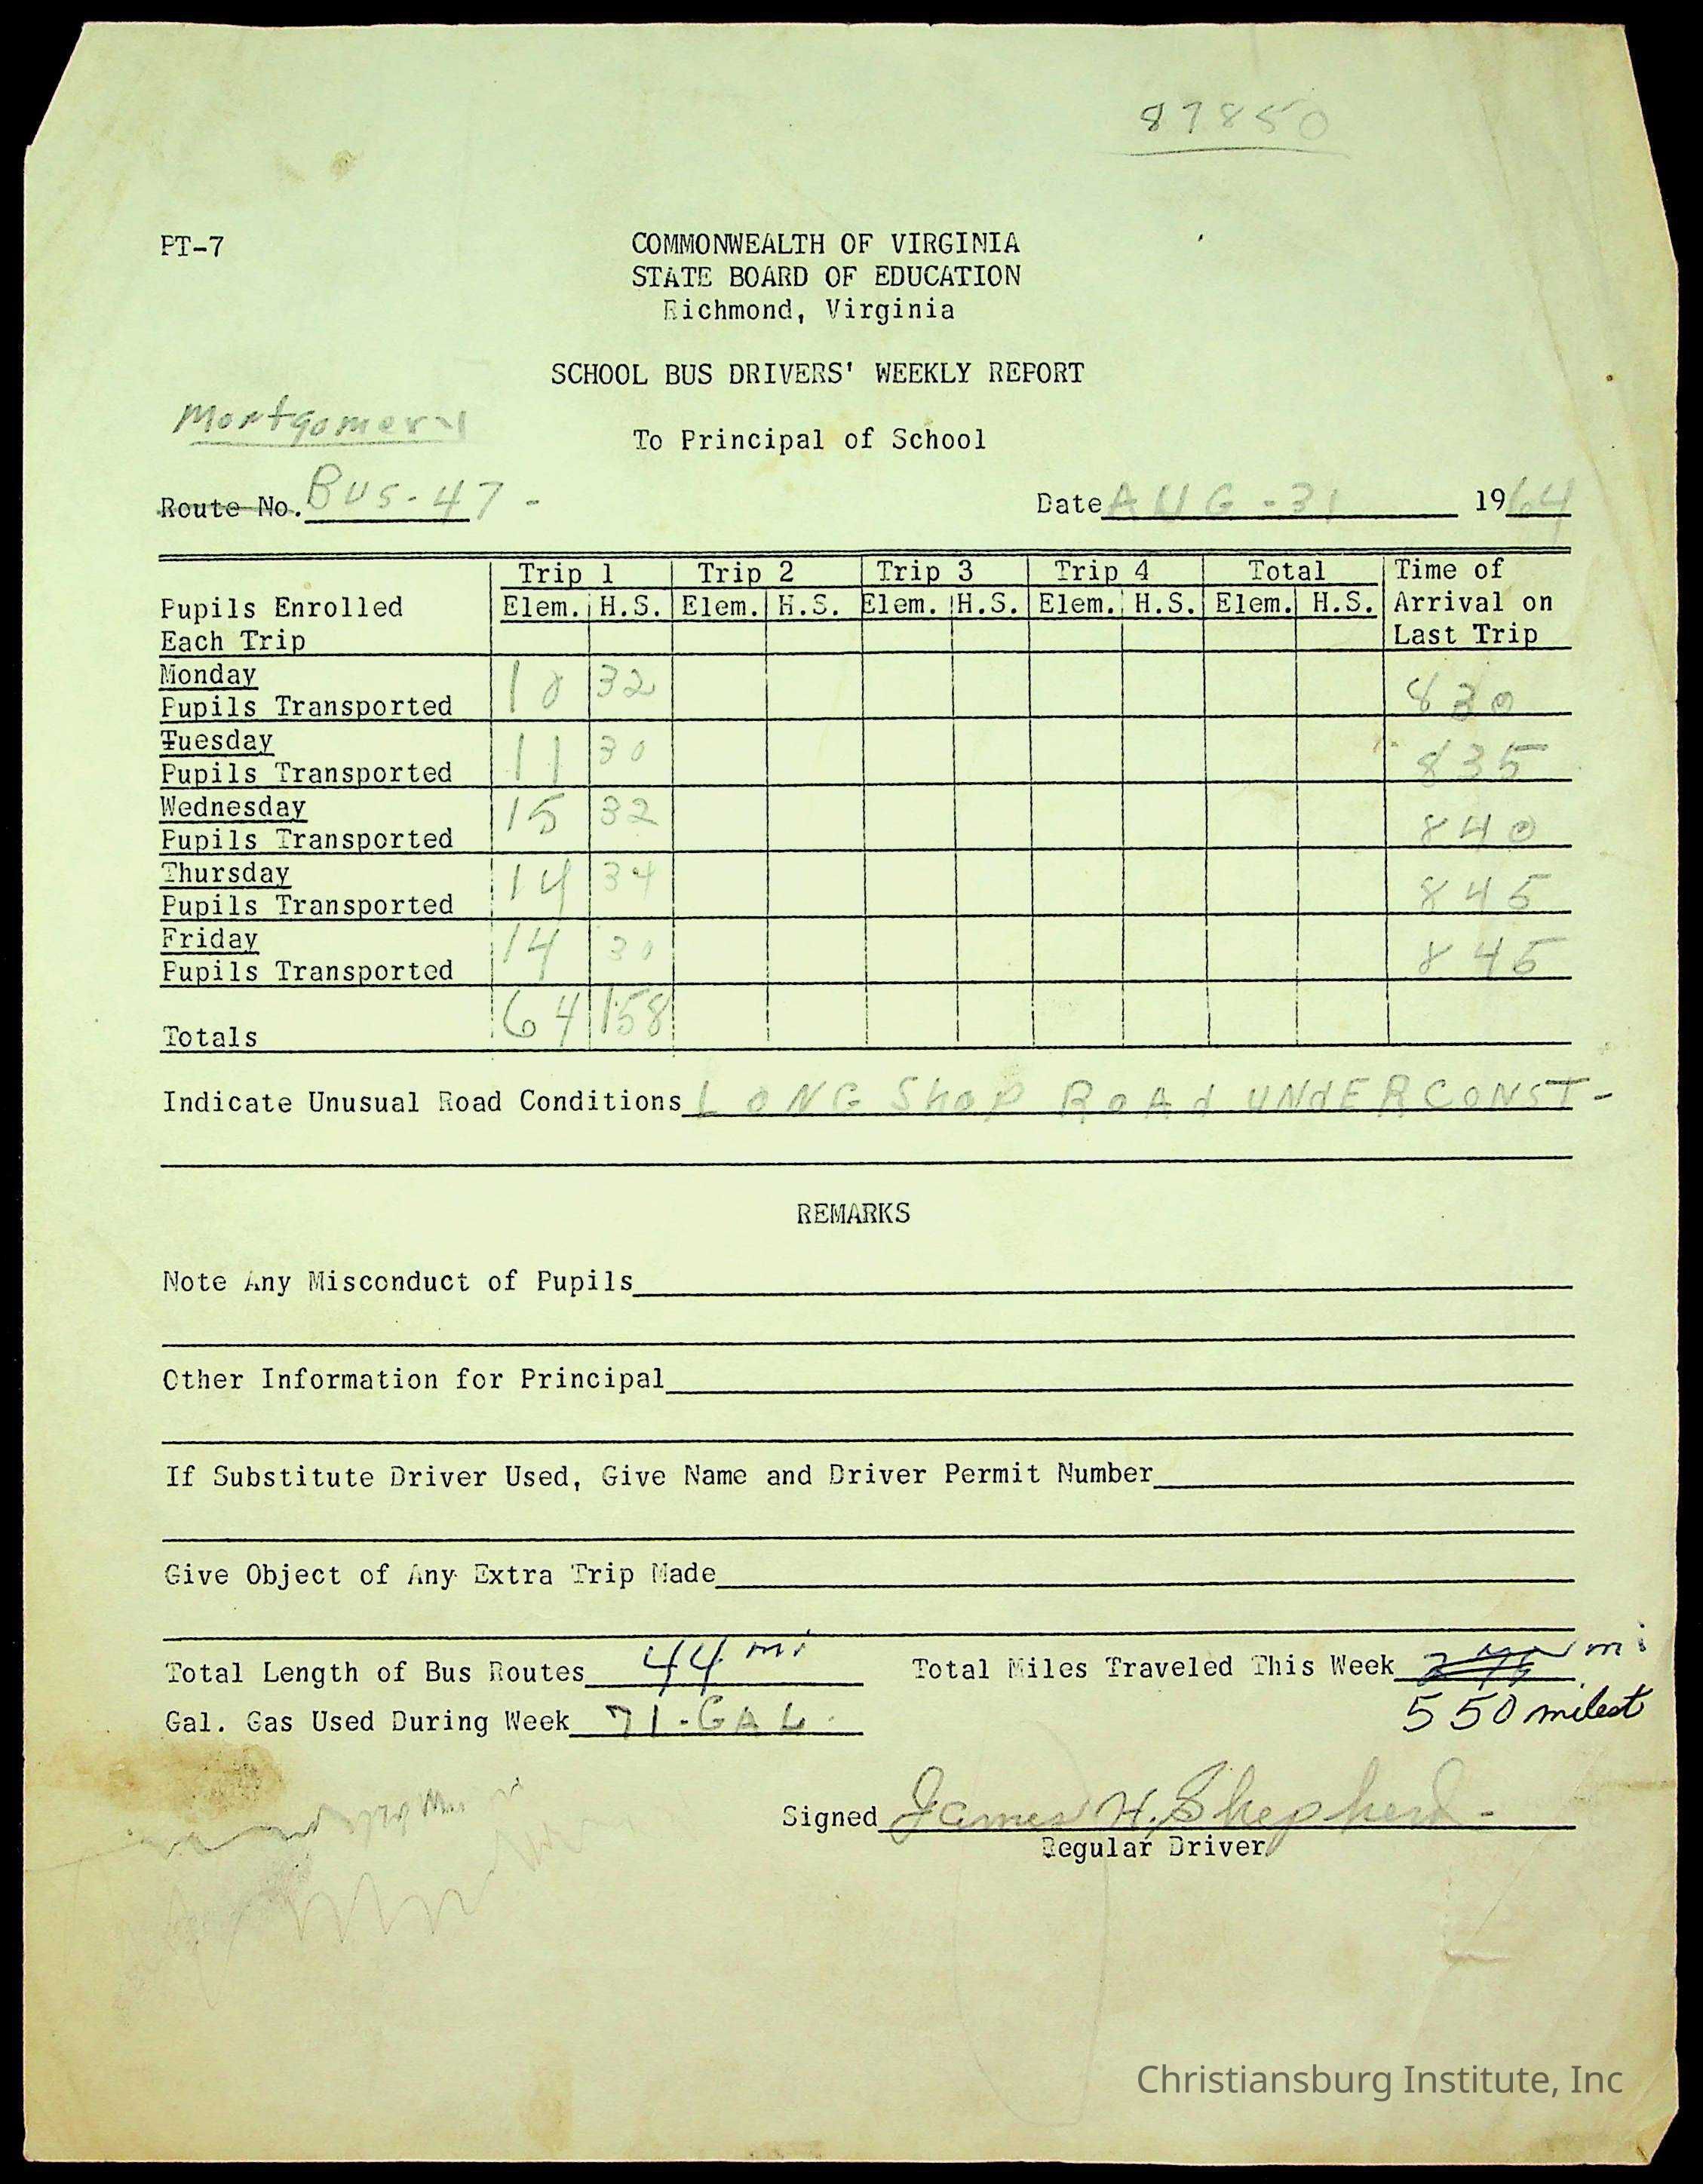 87850
PT-7
COMMONWEALTH OF VIRGINIA
STATE BOARD OF EDUCATION
Richmond, Virginia
SCHOOL BUS DRIVERS' WEEKLY REPORT
Montgomery
To Principal of School
Route No. Bus-47-
Date AUG-31 1964
Trip 1 Trip 2 Trip 3 Trip 4 Total Time of
Pupils Enrolled Elem. H.S. Elem. H.S. Elem. H.S. Elem. H.S. Elem. H.S. Arrival on
Each Trip Last Trip
Monday
Pupils Transported 10 32 830
Tuesday
Pupils Transported 11 30 835
Wednesday
Pupils Transported 15 32 840
Thursday
Pupils Transported 14 34 845
Friday
Pupils Transported 14 30 845
Totals 64 158
Indicate Unusual Road Conditions LONG ShoP RoAd UNdERCONST-
REMARKS
Note Any Misconduct of Pupils
Other Information for Principal
If Substitute Driver Used, Give Name and Driver Permit Number
Give Object of Any Extra Trip Made
Total Length of Bus Routes 44 mi Total Miles Traveled This Week mi
Gal. Gas Used During Week 71-GAL. 550
Signed James H. Shepherd-
Regular Driver
Christiansburg Institute, Inc